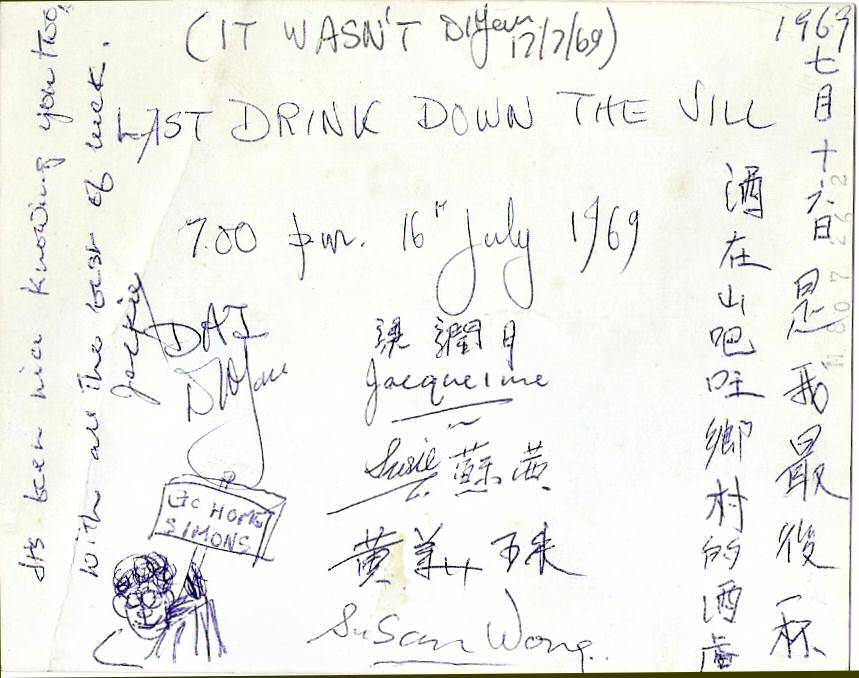 (IT WASN'T
17/7/69)
LAST DRINK DOWN THE VILL
7.00 p.m. 16TH July 1969
1969
七月十六日是我最後一杯
酒在山吧吐鄉村的酒
DAI
梁潤月
Jacqueline
Susie 蘇茜
黃美珠
Susan Wong.
HOME
SIMONS
Its been nice knowing you two,
with all the best of luck.
Jackie
11 60 7 262